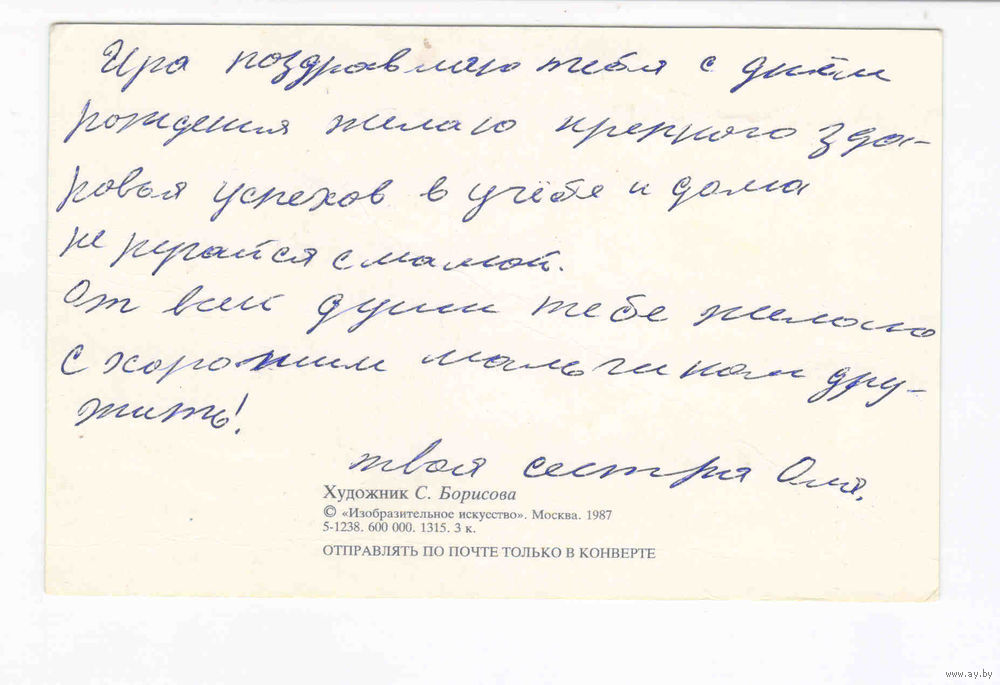 Ира поздравляю тебя с днём
рождения желаю крепкого здо-
ровья успехов в учёбе и дома
не ругайся с мамой.
От всей души тебе желаю
с хорошим мальчиком дру-
жить!
твоя сестра Оля.
Художник С. Борисова
© «Изобразительное искусство». Москва. 1987
5-1238. 600 000. 1315. 3 к.
ОТПРАВЛЯТЬ ПО ПОЧТЕ ТОЛЬКО В КОНВЕРТЕ
www.ay.by